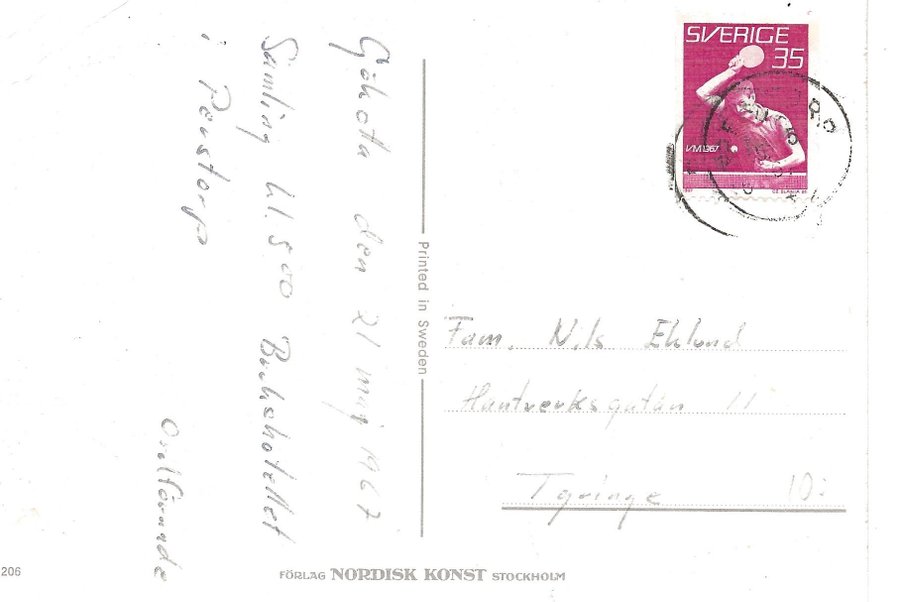 Gökota den 21 maj 1967
Samling kl. 500 Backahotellet
i Perstorp
Ordförande
Printed in Sweden
SVERIGE
35
VM 1967
Fam. Nils Eklund
Hantverksgatan 11
Tyringe 10:
206
FÖRLAG NORDISK KONST STOCKHOLM